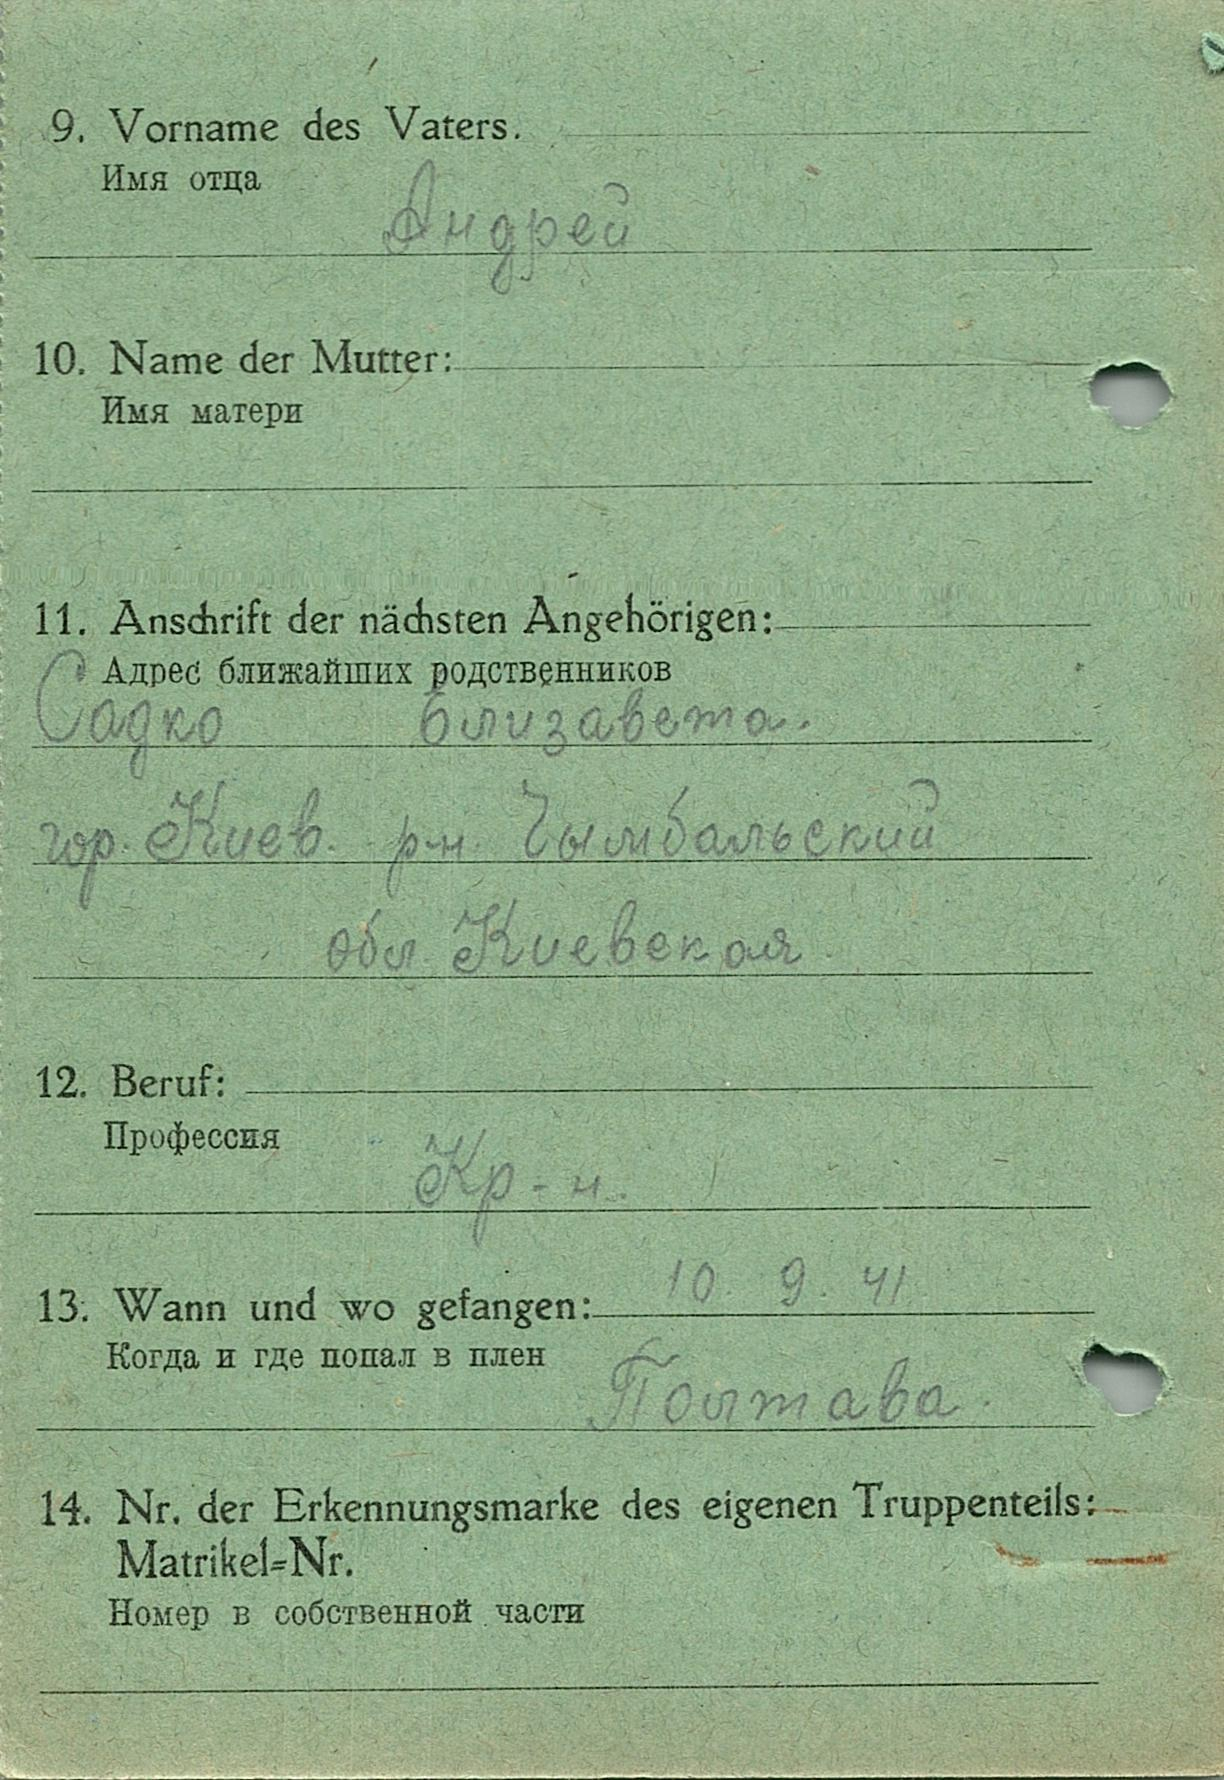 9. Vorname des Vaters.
Имя отца
Андрей
10. Name der Mutter:
Имя матери
11. Anschrift der nächsten Angehörigen:
Адрес ближайших родственников
Садко Елизавета.
гор. Киев. р-н. Чымбальский
обл. Киевская
12. Beruf:
Профессия
Кр-н.
13. Wann und wo gefangen: 10. 9. 41
Когда и где попал в плен
Полтава.
14. Nr. der Erkennungsmarke des eigenen Truppenteils:
Matrikel-Nr.
Номер в собственной части